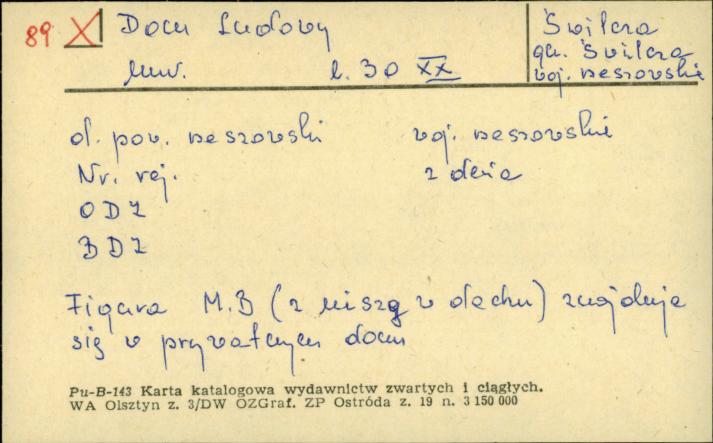 89 X Dom Ludowy
mur. l. 30 XX
Świlcza
gm. Świlcza
woj. rzeszowskie
d. pow. rzeszowski woj. rzeszowskie
Nr. rej. z dnia
ODZ
BDZ
Figura M.B (z niszą w dachu) znajduje
się w prywatnym domu
Pu-B-143 Karta katalogowa wydawnictw zwartych i ciągłych.
WA Olsztyn z. 3/DW OZGraf. ZP Ostróda z. 19 n. 3 150 000